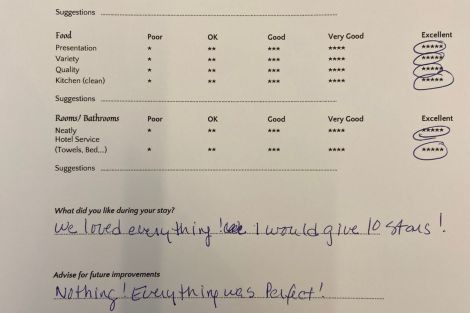 Suggestions
Food Poor OK Good Very Good Excellent
Presentation * ** *** **** *****
Variety * ** *** **** *****
Quality * ** *** **** *****
Kitchen (clean) * ** *** **** *****
Suggestions
Rooms/ Bathrooms Poor OK Good Very Good Excellent
Neatly * ** *** **** *****
Hotel Service
(Towels, Bed...) * ** *** **** *****
Suggestions
What did you like during your stay?
We loved everything! I would give 10 stars!
Advise for future improvements
Nothing! Everything was Perfect!